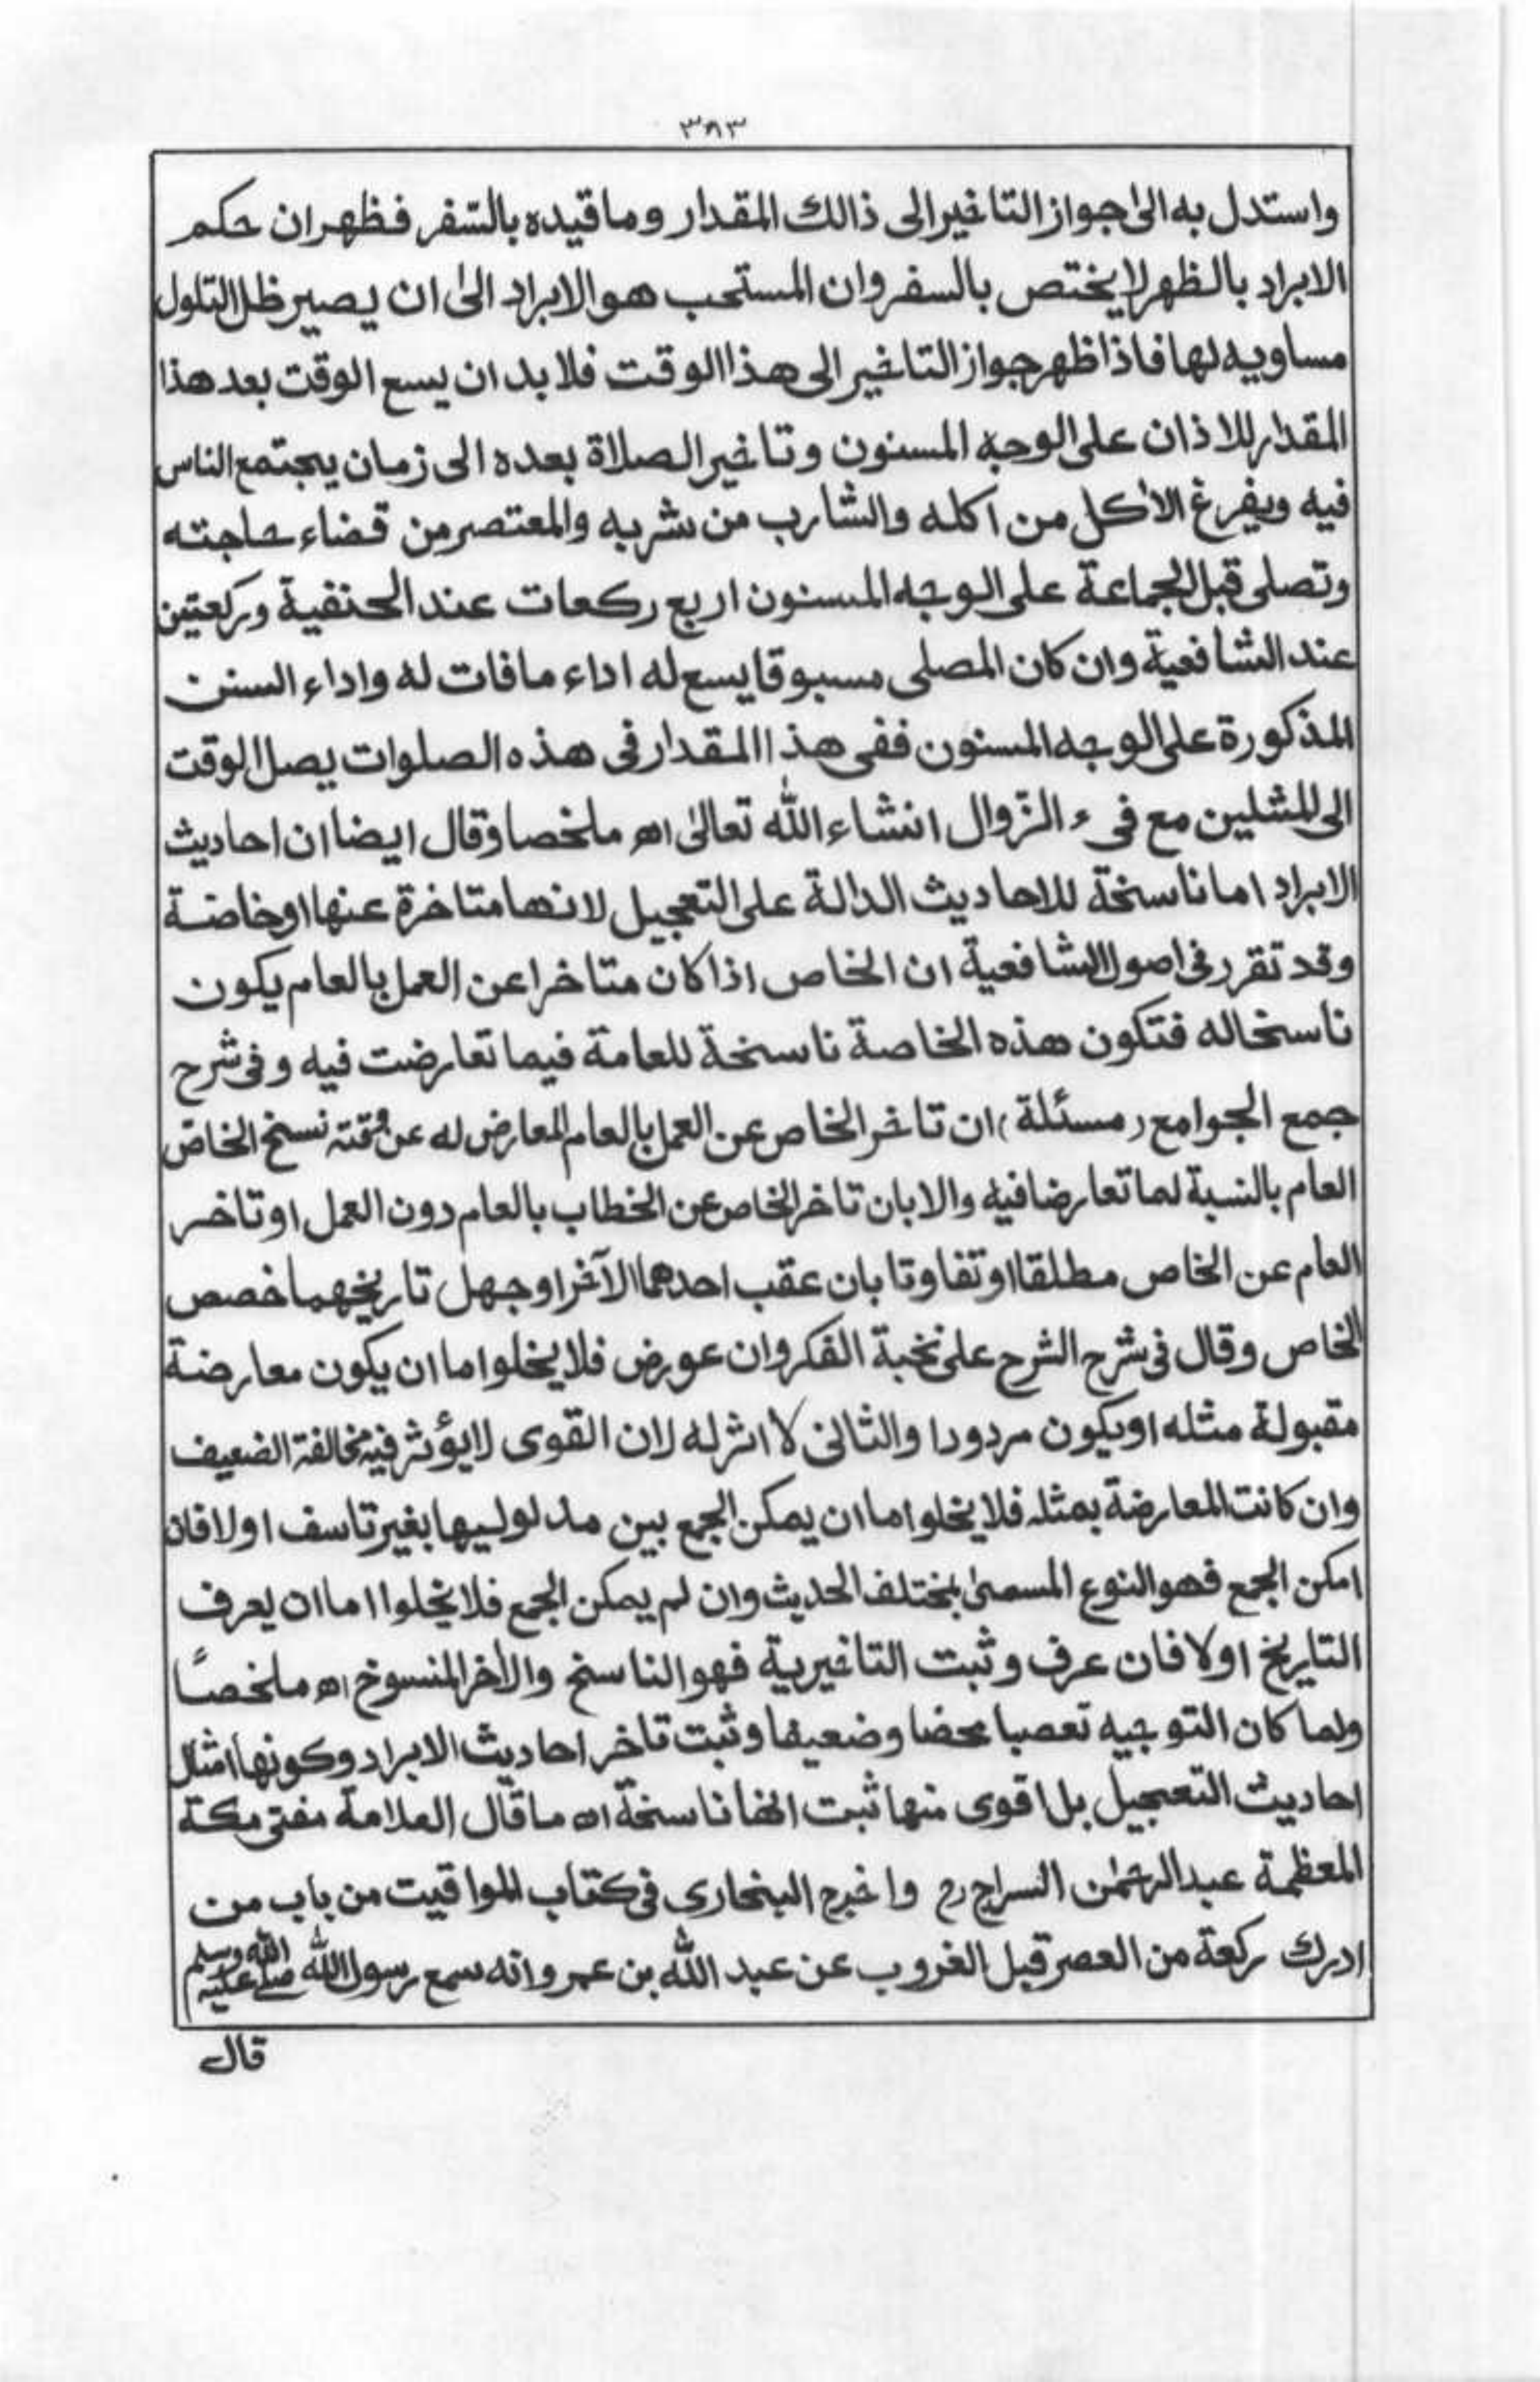 ٣٨٣
واستدل به الىٰ جواز التاخير الى ذالك المقدار وما قيده بالسّفر فظهر ان حكم
الابراد بالظهر لا يختص بالسفر وان المستحب هو الابراد الىٰ ان يصير ظل التلول
مساويه لها فاذا ظهر جواز التاخير الى هذا الوقت فلا بد ان يسع الوقت بعد هذا
المقدار للاذان على الوجه المسنون وتاخير الصلاة بعده الى زمان يجتمع الناس
فيه ويفرغ الاٰكل من اكله والشارب من شربه والمعتصر من قضاء حاجته
وتصلى قبل الجماعة على الوجه المسنون اربع ركعات عند الحنفية وركعتين
عند الشافعية وان كان المصلى مسبوقا يسع له اداء ما فات له واداء السنن
المذكورة على الوجه المسنون ففى هذا المقدار فى هذه الصلوات يصل الوقت
الى المثلين مع فىء الزّوال انشاء اللّٰه تعالىٰ اھ ملخصا وقال ايضا ان احاديث
الابراد اما ناسخة للاحاديث الدالة على التعجيل لانها متاخرة عنها او خاصة
وقد تقرر فى اصول الشافعية ان الخاص اذا كان متاخرا عن العمل بالعام يكون
ناسخاله فتكون هذه الخاصة ناسخة للعامة فيما تعارضت فيه وفى شرح
جمع الجوامع (مسئلة) ان تاخر الخاص عن العمل بالعام المعارض له عن وقته نسخ الخاص
العام بالنسبة لما تعارضا فيه والا بان تاخر الخاص عن الخطاب بالعام دون العمل او تاخر
العام عن الخاص مطلقا او تفاوتا بان عقب احدهما الآخر او جهل تاريخهما خصص
الخاص وقال فى شرح الشرح على نخبة الفكر وان عورض فلا يخلوا ما ان يكون معارضة
مقبولة مثله او يكون مردودا والثانى لا اثر له لان القوى لا يؤثر فيه مخالفة الضعيف
وان كانت المعارضة بمثله فلا يخلوا ما ان يمكن الجمع بين مدلوليها بغير تاسف اولا فان
امكن الجمع فهو النوع المسمىٰ بمختلف الحديث وان لم يمكن الجمع فلا يخلوا اما ان يعرف
التاريخ اولا فان عرف وثبت التاخيرية فهو الناسخ والاٰخر المنسوخ اھ ملخصًا
ولما كان التوجيه تعصبا محضا وضعيفا وثبت تاخر احاديث الابراد وكونها امثال
احاديث التعجيل بل اقوى منها ثبت انها ناسخة اھ ما قال العلامة مفتى مكة
المعظمة عبد الرحمٰن السراج رح واخرج البخارى فى كتاب المواقيت من باب من
ادرك ركعة من العصر قبل الغروب عن عبد اللّٰه بن عمر وانه سمع رسول اللّٰه صلى اللّٰه عليه وسلم
قال